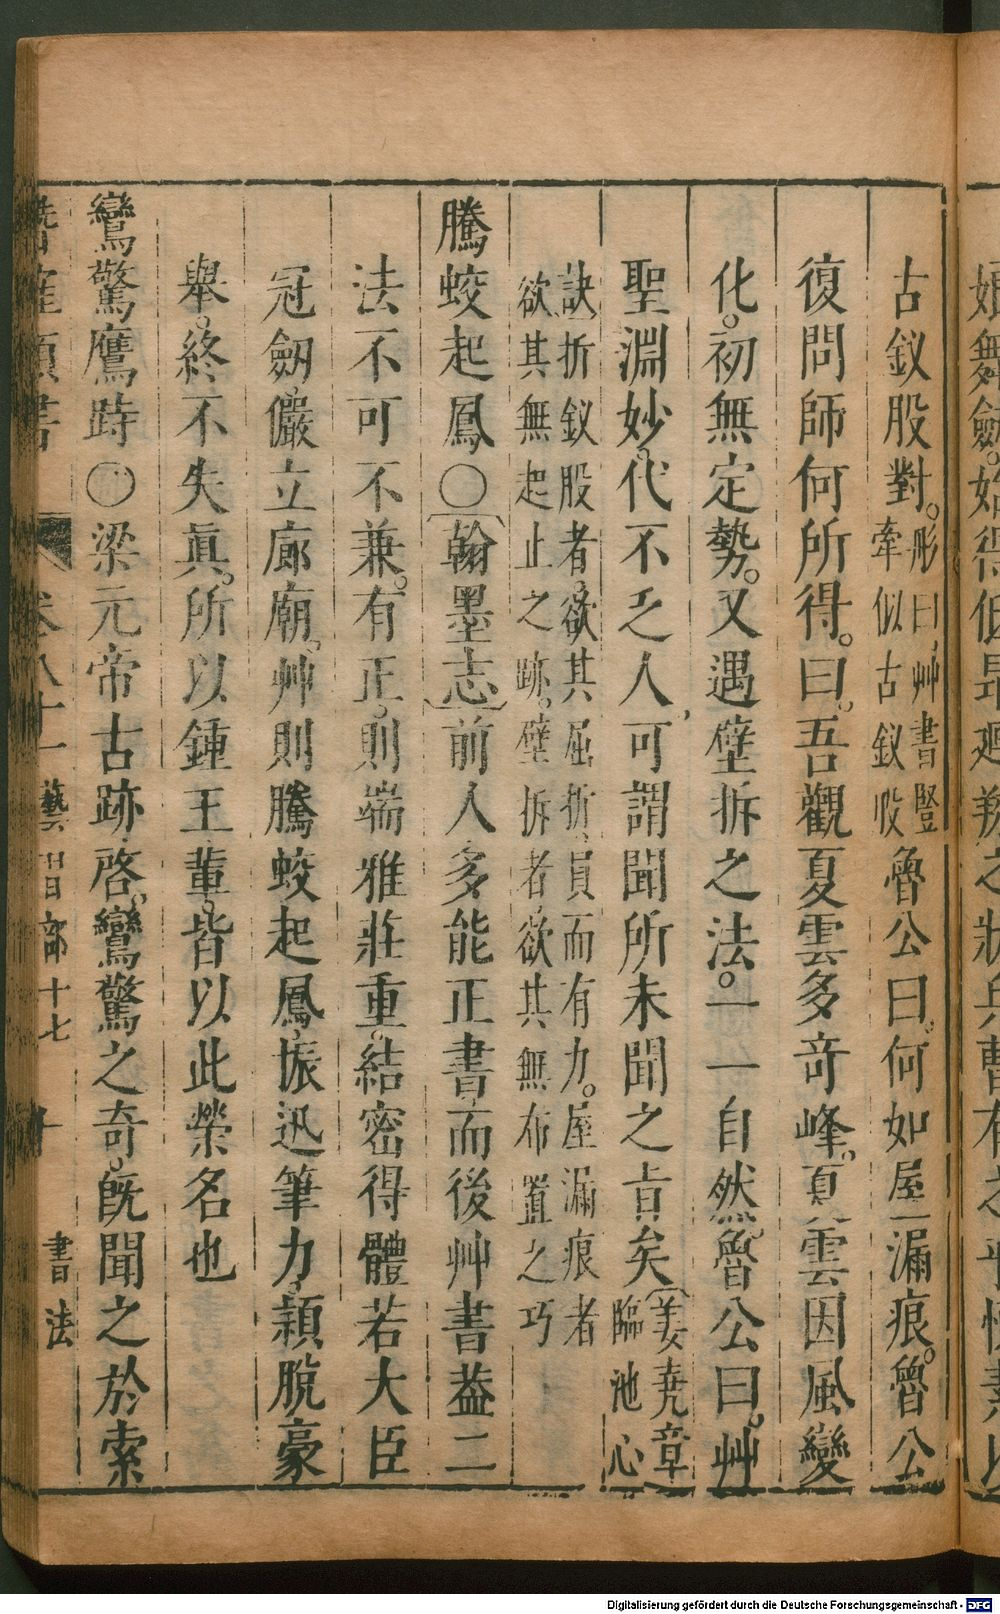 娘舞劍。始得低昂廻翔之狀兵曹有之乎懷素以
古釵股對。彤曰艸書豎
牽似古釵收
魯公曰。何如屋漏痕。魯公
復問師何所得。曰。吾觀夏雲多奇峰。夏雲因風變
化。初無定勢。又遇壁拆之法。一一自然。魯公曰。艸
聖淵妙。代不乏人可謂聞所未聞之旨矣
姜堯章
臨池心
訣折釵股者。欲其屈折員而有力。屋漏痕者
欲其無起止之跡。壁拆者欲其無布置之巧
騰蛟起鳳○翰墨志前人多能正書而後艸書葢二
法不可不兼。有正。則端雅莊重。結密得體若大臣
冠劒儼立廊廟。艸則騰蛟起鳳振迅筆力。穎脫豪
舉。終不失眞。所以鍾王輩。皆以此榮名也
鸞驚鷹跱○梁元帝古跡啓。鸞驚之奇。旣聞之於索
潛確類書 卷八十一 藝習部十七 十 書法
Digitalisierung gefördert durch die Deutsche Forschungsgemeinschaft - DFG